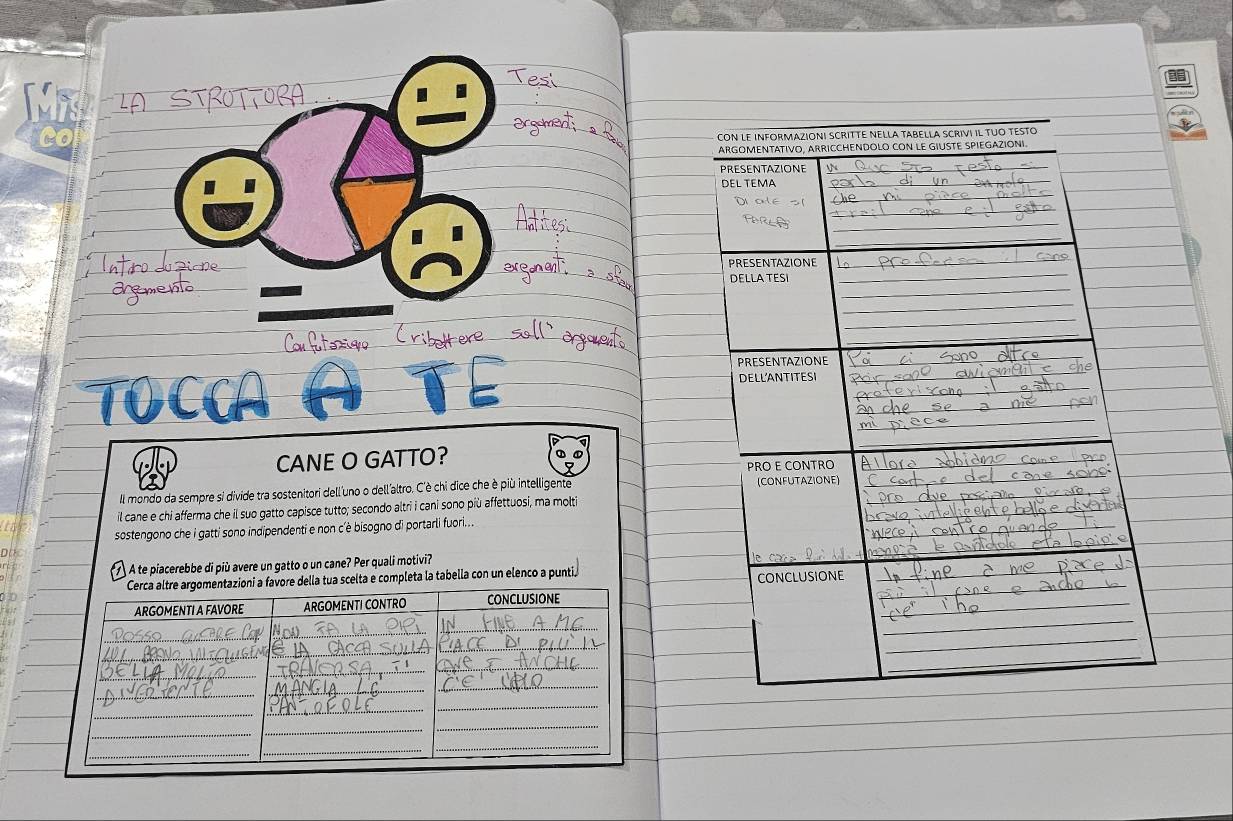 LA STRUTTURA...
Tesi
argomenti a
Antitesi
argomenti a
Introduzione
argomento
Confutazione (ribattere sull' argomento
TOCCA A TE
CANE O GATTO?
Il mondo da sempre si divide tra sostenitori dell'uno o dell'altro. C'è chi dice che è più intelligente
il cane e chi afferma che il suo gatto capisce tutto; secondo altri i cani sono più affettuosi, ma molti
sostengono che i gatti sono indipendenti e non c'è bisogno di portarli fuori...
A te piacerebbe di più avere un gatto o un cane? Per quali motivi?
Cerca altre argomentazioni a favore della tua scelta e completa la tabella con un elenco a punti.
ARGOMENTI A FAVORE ARGOMENTI CONTRO CONCLUSIONE
POSSO GIOCARE CON NON FA LA PIPI IN FINE A ME
LUI BRAVO INTELLIGENTE E LA CACCA SULLA PIACE DI PIU' IL
BELLA MOLTO TRAVERSA TI CANE E ANCHE
DIVERTENTE MANGIA LE C'E' L'HO
PANTOFOLE
Mis
CON LE INFORMAZIONI SCRITTE NELLA TABELLA SCRIVI IL TUO TESTO
ARGOMENTATIVO, ARRICCHENDOLO CON LE GIUSTE SPIEGAZIONI.
PRESENTAZIONE
DEL TEMA
DI CHE SI
PARLA
in questo testo si
parla di un animale
che mi piace molto
tra il cane e il gatto
PRESENTAZIONE
DELLA TESI
Io il cane
PRESENTAZIONE
DELL'ANTITESI
Poi ci sono altre
persone che
preferiscono il gatto
anche se a me non
mi piace
PRO E CONTRO
(CONFUTAZIONE)
Allora abbiamo come pro
e contro del cane sono:
i pro che possiamo giocare, e
bravo, intelligente, bello e divertente
invece i contro quando ti
mangia le pantofole e fa la pipi e
le cacca
CONCLUSIONE
In fine a me piace di
più il cane e anche
ce l'ho